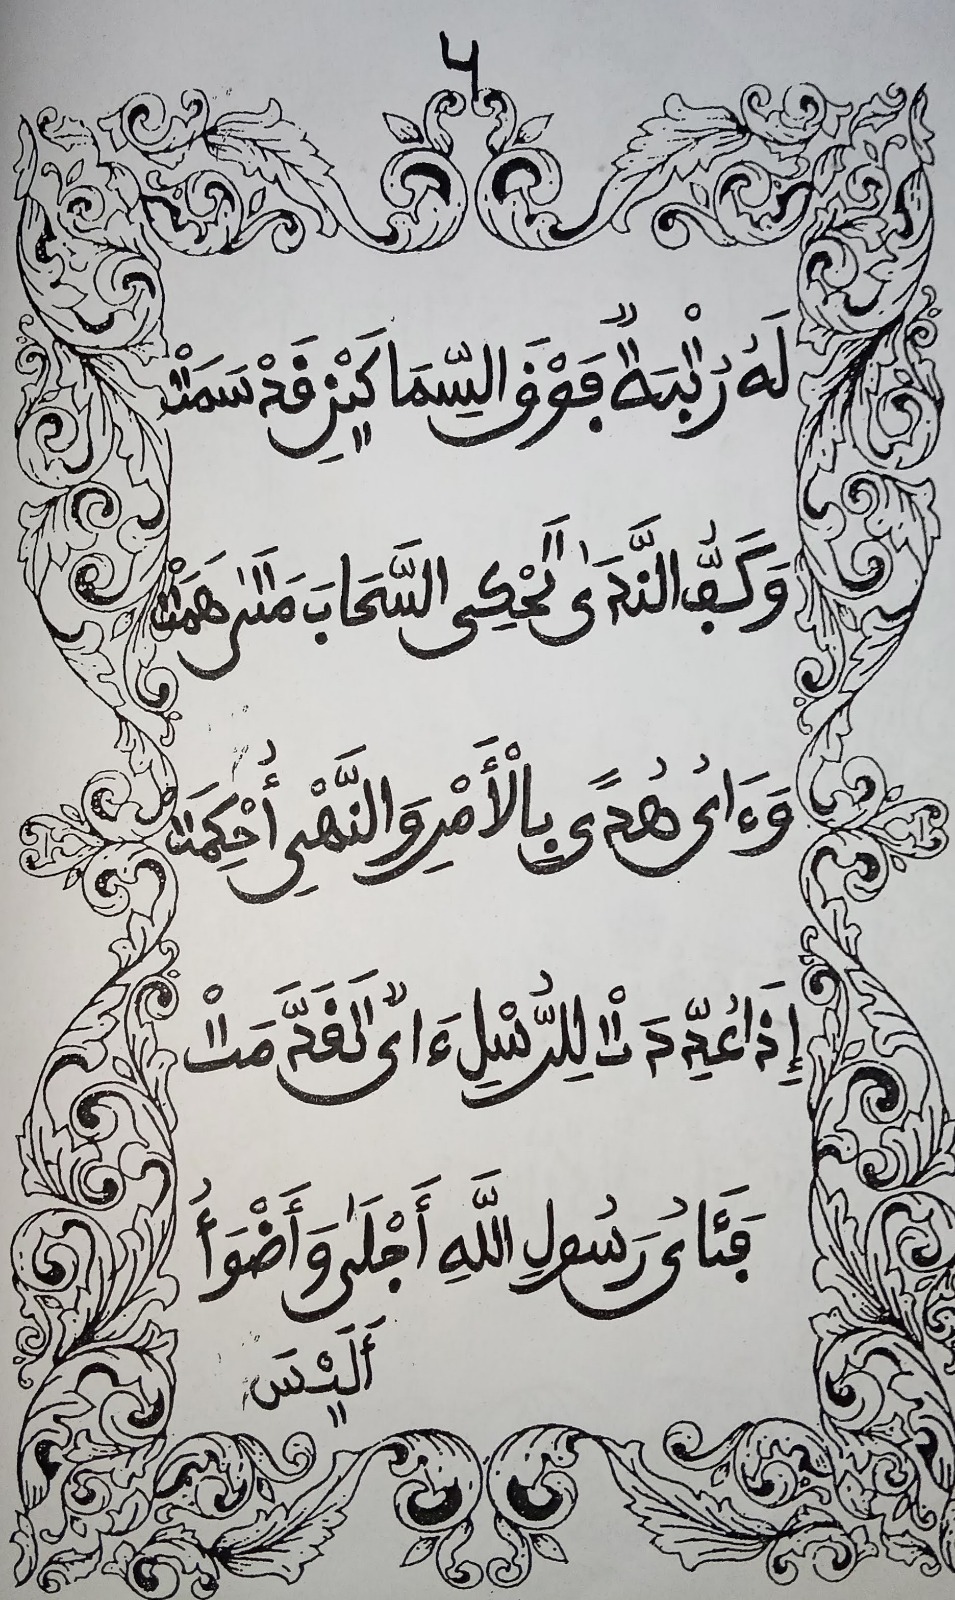 ٦
لَهُ رُتْبَةٌ فَوْقَ السِّمَاكَيْنِ قَدْ سَمَتْ
وَكَفُّ النَّدَىٰ تَحْكِى السَّحَابَ مَتَىٰ هَمَتْ
وَءَاىُ هُدًى بِالْأَمْرِ وَالنَّهْىِ أُحْكِمَتْ
إِذَا عُدِّدَتْ لِلرُّسْلِ ءَاىٌ تَقَدَّمَتْ
فَـَٔاىُ رَسُولِ اللَّهِ أَجْلَىٰ وَأَضْوَأُ
أَلَيْسَ